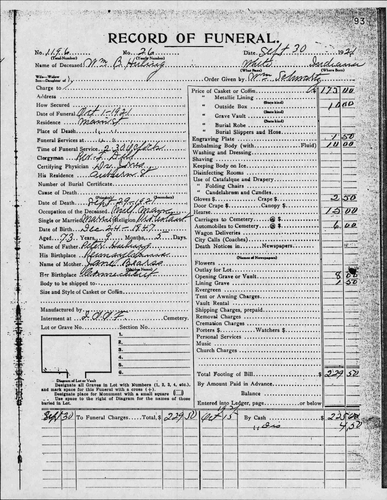 93
RECORD OF FUNERAL.
No. 1196 No. 26 Date, Sept 30 192
(Total Record) (Yearly Number)
Name of Deceased Wm B. White Indiana
(What Race) (Where Born)
Charge to
Order Given by Wm
Address
How Secured
Date of Funeral Oct 1-1921
Residence Main St
Place of Death
Funeral Services at
Time of Funeral Service, 2:30 o'clock
Clergyman
Certifying Physician
His Residence Auburn St
Number of Burial Certificate
Cause of Death
Date of Death Sept 29-1921
Occupation of the Deceased
Single or Married Married Religion
Date of Birth Dec 26 1847
Aged 73 Years 9 Months 3 Days
Name of Father Peter
His Birthplace Pennsylvania
Name of Mother Jane
Her Birthplace Connecticut
Body to be shipped to
Size and Style of Casket or Coffin
Manufactured by
Interment at I.O.O.F Cemetery.
Lot or Grave No. Section No.
1
2
3
4
5
6
Diagram of Lot or Vault
Designate all Graves in Lot with Numbers (1, 2, 3, 4, etc.), and mark space for this Funeral with a cross (+).
Designate place for Monument with a small square
Use space to the right of Diagram for the names of those buried in Lot.
Price of Casket or Coffin 175.00
" Metallic Lining
" Outside Box 10.00
" Grave Vault
" Burial Robe
" Burial Slippers and Hose
Engraving Plate 1.50
Embalming Body (with Fluid) 10.00
Washing and Dressing
Shaving
Keeping Body on Ice
Disinfecting Rooms
Use of Catafalque and Drapery
" Folding Chairs
" Candelabrum and Candles
Gloves $ Crape $ 2.50
Door Crape $ Canopy $
Hearse 15.00
Carriages to Cemetery @ $
Automobiles to Cemetery @ $ 6.00
Wagon Deliveries
City Calls (Coaches)
Death Notices in Newspapers
(Names of Newspapers)
Flowers
Outlay for Lot
Opening Grave or Vault 8.00
Lining Grave 1.50
Evergreen
Tent or Awning Charges
Vault Rental
Shipping Charges, prepaid
Removal Charges
Cremation Charges
Porters $ Watchers $
Personal Services
Music
Church Charges
Total Footing of Bill $ 229.50
By Amount Paid in Advance
Balance
Entered into Ledger, page or below.
Sept 30 To Funeral Charges Total, $ 229 50 Oct 15 By Cash $ 225.00
" Dis 4.50